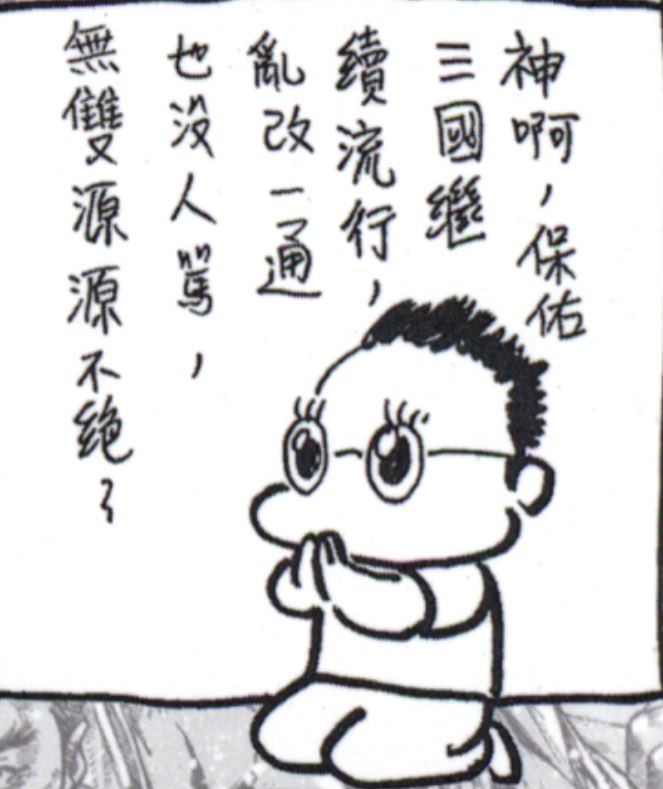 神啊，保佑
三國繼
續流行，
亂改一通
也沒人罵，
無雙源源不絕～